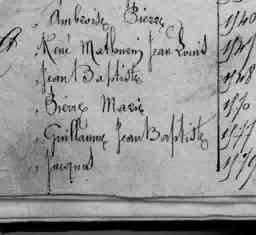 Ambroise Pierre 1740
René Mathurin Jean Louis
Jean Baptiste 1748
Pierre Marie
Guillaume Jean Baptiste 1777
Jacques 1779